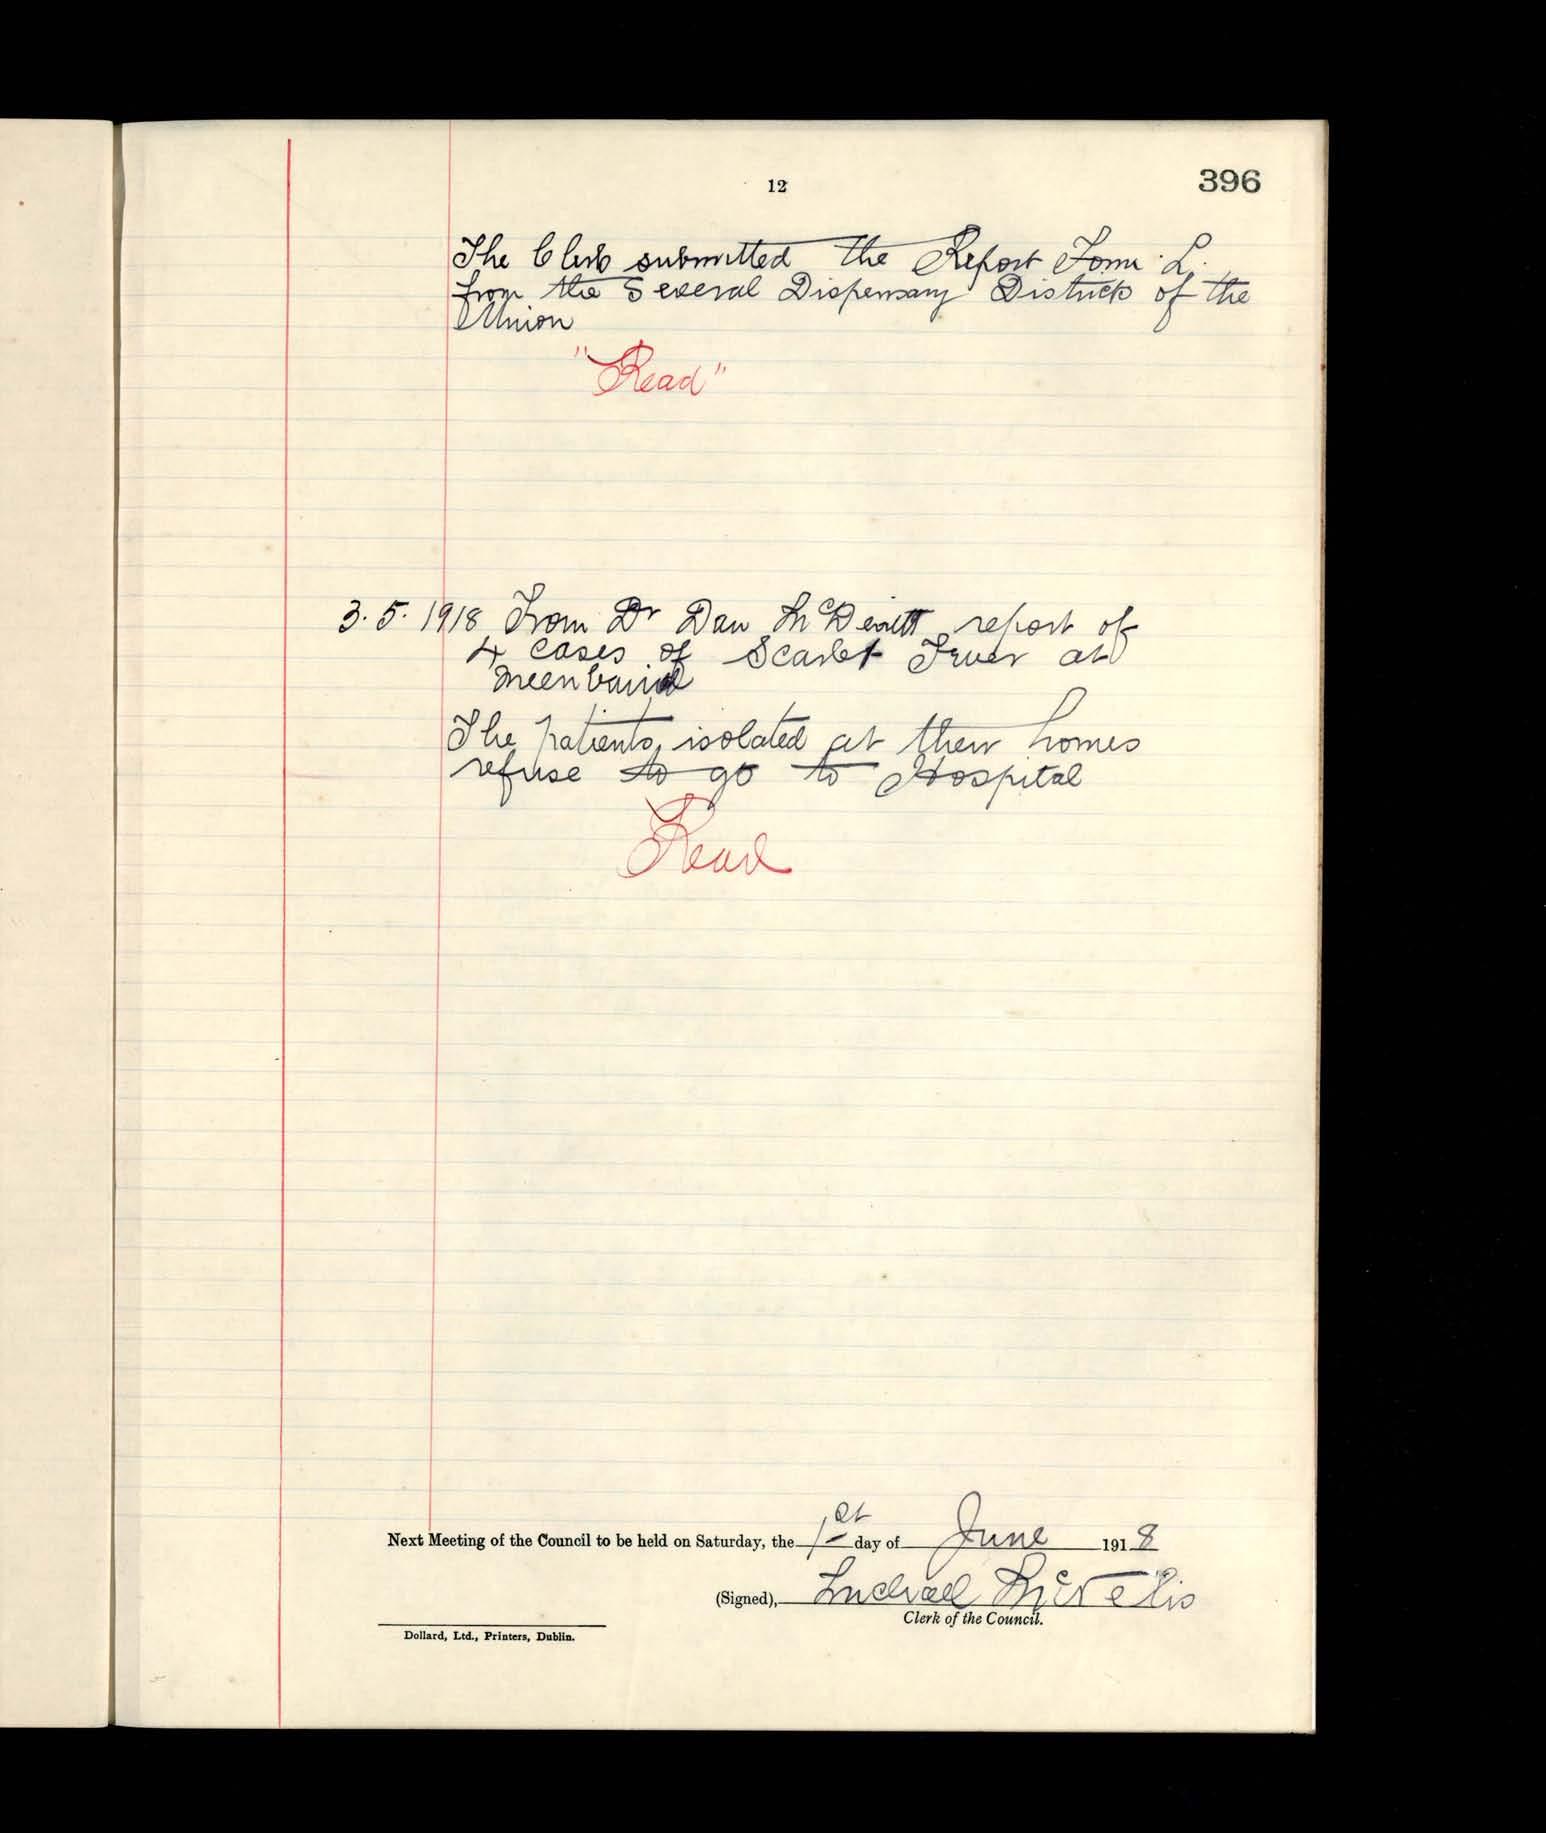 12
396
The Clerk submitted the Report Form L.
from the Several Dispensary Districts of the
Union
"Read"
3.5.1918 From Dr Dan McDevitt report of
4 cases of Scarlet Fever at
The patients isolated at their homes
refuse to go to Hospital
Read
Next Meeting of the Council to be held on Saturday, the 1st day of June 1918
(Signed), Michael McNelis
Clerk of the Council.
Dollard, Ltd., Printers, Dublin.